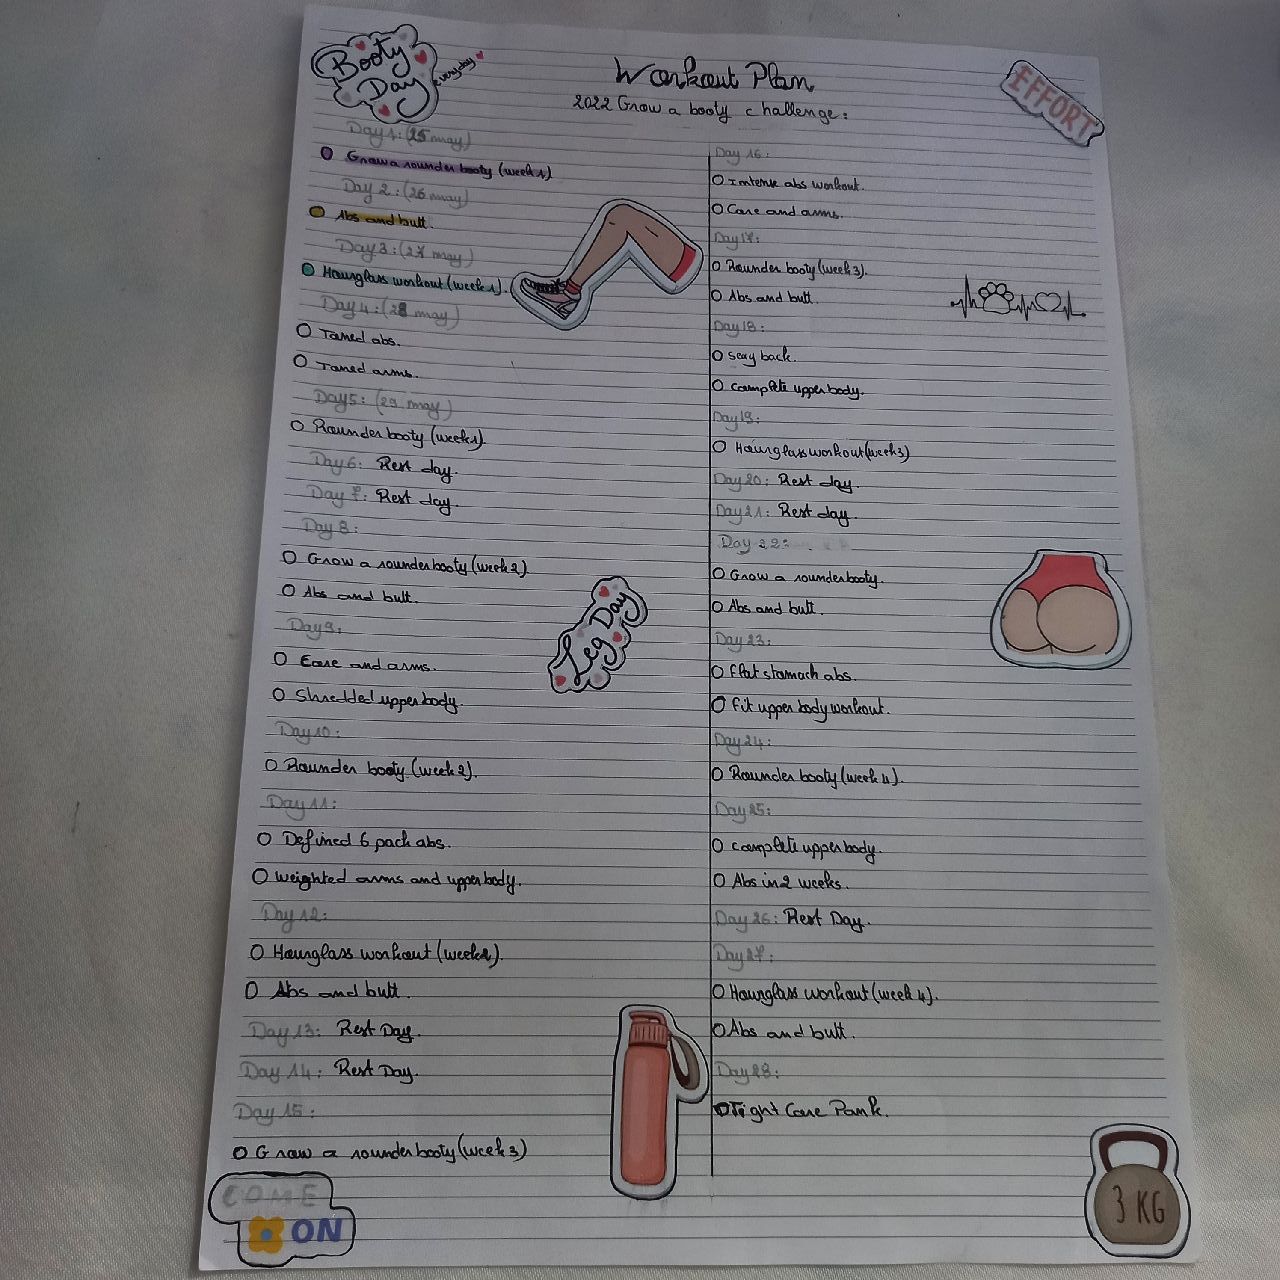 Booty
Day
everyday
Workout Plan
2022 Grow a booty challenge:
EFFORT
Day 1: (25 may)
Grow a rounder booty (week 1)
Day 2: (26 may)
Abs and butt.
Day 3: (27 may)
Hourglass workout (week 1).
Day 4: (28 may)
Toned abs.
Toned arms.
Day 5: (29 may)
Rounder booty (week 1)
Day 6: Rest day.
Day 7: Rest day.
Day 8:
Grow a rounder booty (week 2)
Abs and butt.
Day 9:
Core and arms.
Shredded upper body.
Day 10:
Rounder booty (week 2).
Day 11:
Defined 6 pack abs.
Weighted arms and upper body.
Day 12:
Hourglass workout (week 2).
Abs and butt.
Day 13: Rest Day.
Day 14: Rest Day.
Day 15:
Grow a rounder booty (week 3)
COME
ON
Leg Day
Day 16:
Intense abs workout.
Core and arms.
Day 17:
Rounder booty (week 3).
Abs and butt.
Day 18:
Sexy back.
Complete upper body.
Day 19:
Hourglass workout (week 3)
Day 20: Rest day.
Day 21: Rest day.
Day 22:
Grow a rounder booty.
Abs and butt.
Day 23:
Flat stomach abs.
Fit upper body workout.
Day 24:
Rounder booty (week 4).
Day 25:
Complete upper body.
Abs in 2 weeks.
Day 26: Rest Day.
Day 27:
Hourglass workout (week 4).
Abs and butt.
Day 28:
Tight Core Pank.
3 KG